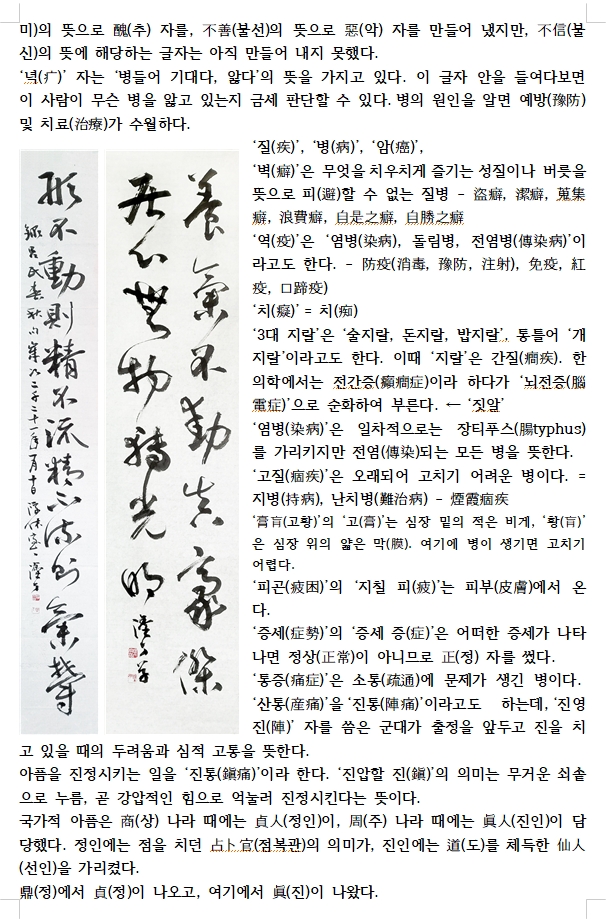 미)의 뜻으로 醜(추) 자를, 不善(불선)의 뜻으로 惡(악) 자를 만들어 냈지만, 不信(불
신)의 뜻에 해당하는 글자는 아직 만들어 내지 못했다.
‘녁(疒)’ 자는 ‘병들어 기대다, 앓다’의 뜻을 가지고 있다. 이 글자 안을 들여다보면
이 사람이 무슨 병을 앓고 있는지 금세 판단할 수 있다. 병의 원인을 알면 예방(豫防)
및 치료(治療)가 수월하다.
養氣不動真豪傑
居心無物轉光明
形不動則精不流精不流則氣鬱
錄呂氏春秋句
‘질(疾)’, ‘병(病)’, ‘암(癌)’,
‘벽(癖)’은 무엇을 치우치게 즐기는 성질이나 버릇을
뜻으로 피(避)할 수 없는 질병 – 盜癖, 潔癖, 蒐集
癖, 浪費癖, 自是之癖, 自勝之癖
‘역(疫)’은 ‘염병(染病), 돌림병, 전염병(傳染病)’이
라고도 한다. – 防疫(消毒, 豫防, 注射), 免疫, 紅
疫, 口蹄疫)
‘치(癡)’ = 치(痴)
‘3대 지랄’은 ‘술지랄, 돈지랄, 밥지랄’, 통틀어 ‘개
지랄’이라고도 한다. 이때 ‘지랄’은 간질(癎疾). 한
의학에서는 전간증(癲癎症)이라 하다가 ‘뇌전증(腦
電症)’으로 순화하여 부른다. ← ‘짓앓’
‘염병(染病)’은 일차적으로는 장티푸스(腸typhus)
를 가리키지만 전염(傳染)되는 모든 병을 뜻한다.
‘고질(痼疾)’은 오래되어 고치기 어려운 병이다. =
지병(持病), 난치병(難治病) – 煙霞痼疾
‘膏肓(고황)’의 ‘고(膏)’는 심장 밑의 적은 비계, ‘황(肓)’
은 심장 위의 얇은 막(膜). 여기에 병이 생기면 고치기
어렵다.
‘피곤(疲困)’의 ‘지칠 피(疲)’는 피부(皮膚)에서 온
다.
‘증세(症勢)’의 ‘증세 증(症)’은 어떠한 증세가 나타
나면 정상(正常)이 아니므로 正(정) 자를 썼다.
‘통증(痛症)’은 소통(疏通)에 문제가 생긴 병이다.
‘산통(産痛)’을 ‘진통(陣痛)’이라고도 하는데, ‘진영
진(陣)’ 자를 씀은 군대가 출정을 앞두고 진을 치
고 있을 때의 두려움과 심적 고통을 뜻한다.
아픔을 진정시키는 일을 ‘진통(鎭痛)’이라 한다. ‘진압할 진(鎭)’의 의미는 무거운 쇠솥
으로 누름, 곧 강압적인 힘으로 억눌러 진정시킨다는 뜻이다.
국가적 아픔은 商(상) 나라 때에는 貞人(정인)이, 周(주) 나라 때에는 眞人(진인)이 담
당했다. 정인에는 점을 치던 占卜官(점복관)의 의미가, 진인에는 道(도)를 체득한 仙人
(선인)을 가리켰다.
鼎(정)에서 貞(정)이 나오고, 여기에서 眞(진)이 나왔다.